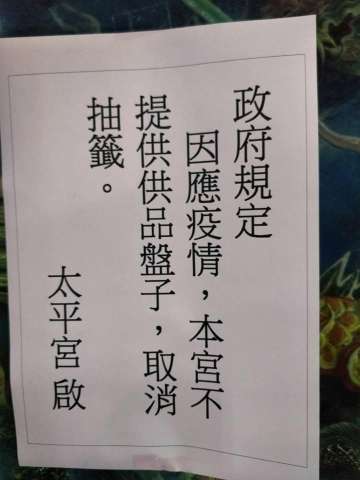 政府規定
因應疫情，本宮不
提供供品盤子，取消
抽籤。
太平宮 啟